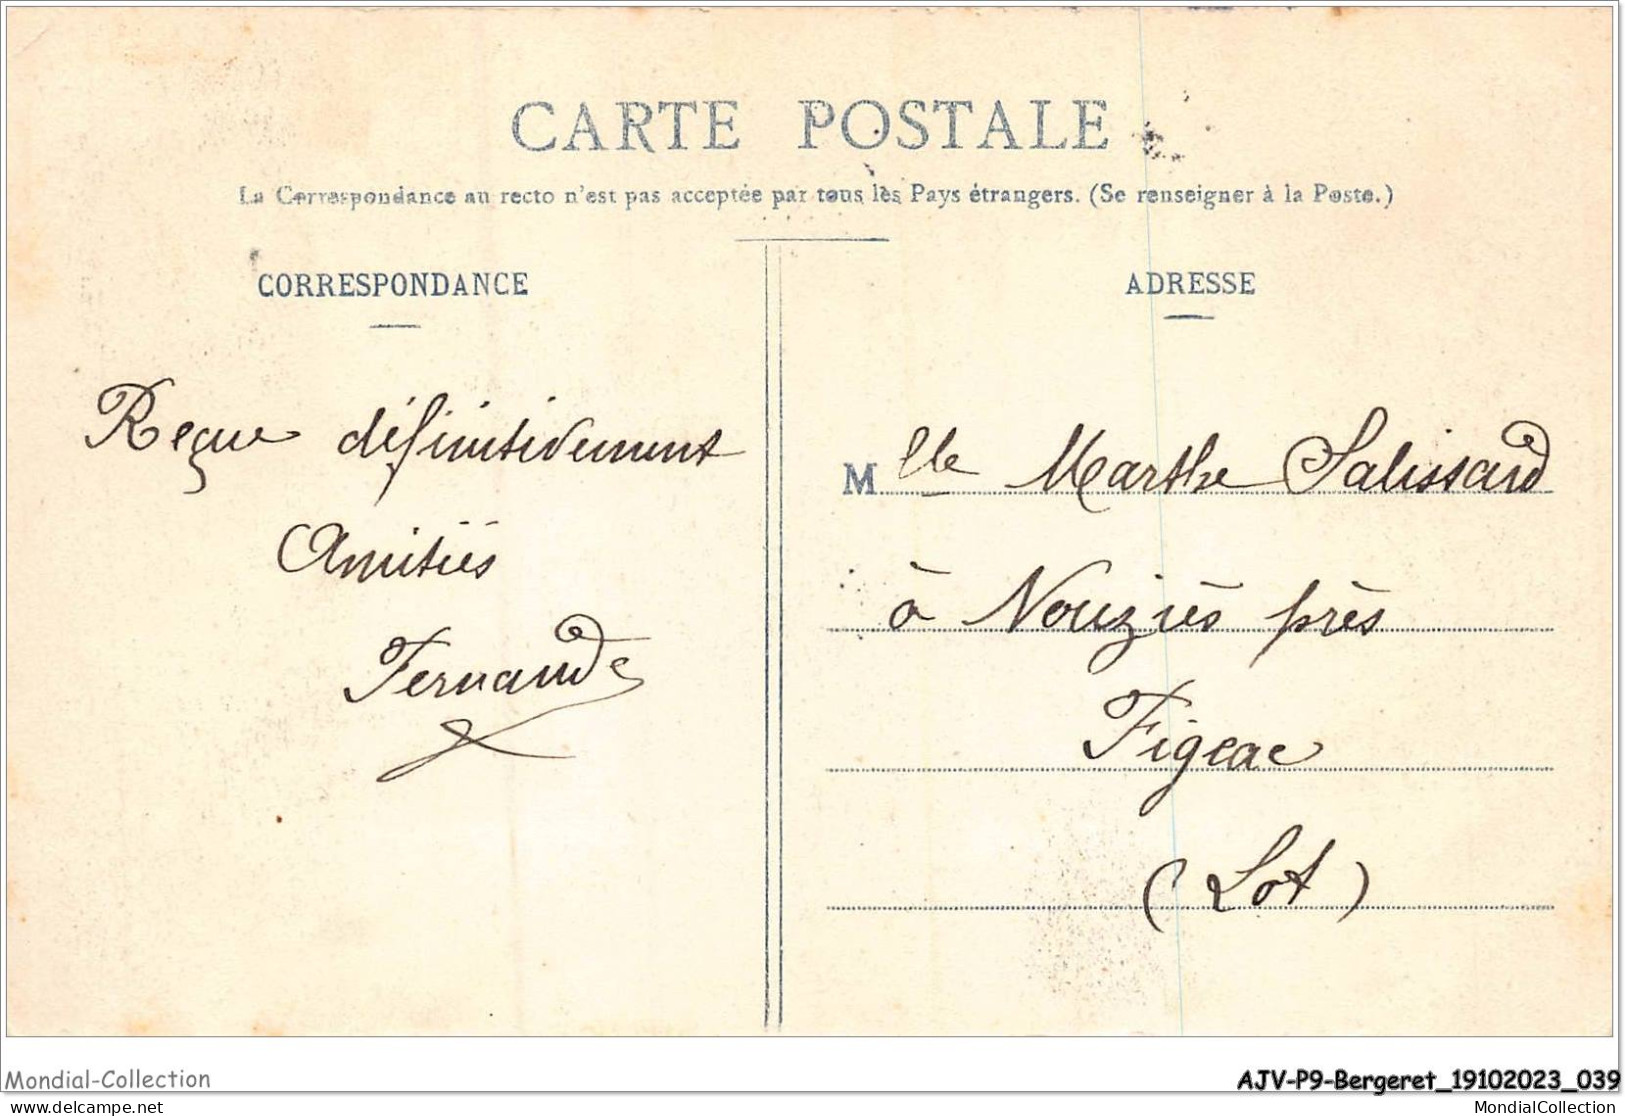 CARTE POSTALE
La Correspondance au recto n'est pas acceptée par tous les Pays étrangers. (Se renseigner à la Poste.)
CORRESPONDANCE
Reçue définitivement
Amitiés
Fernande
ADRESSE
Mlle Marthe Salissard
à Nouziès près
Figeac
(Lot)
Mondial-Collection
delcampe.net
AJV-P9-Bergeret_19102023_039
MondialCollection